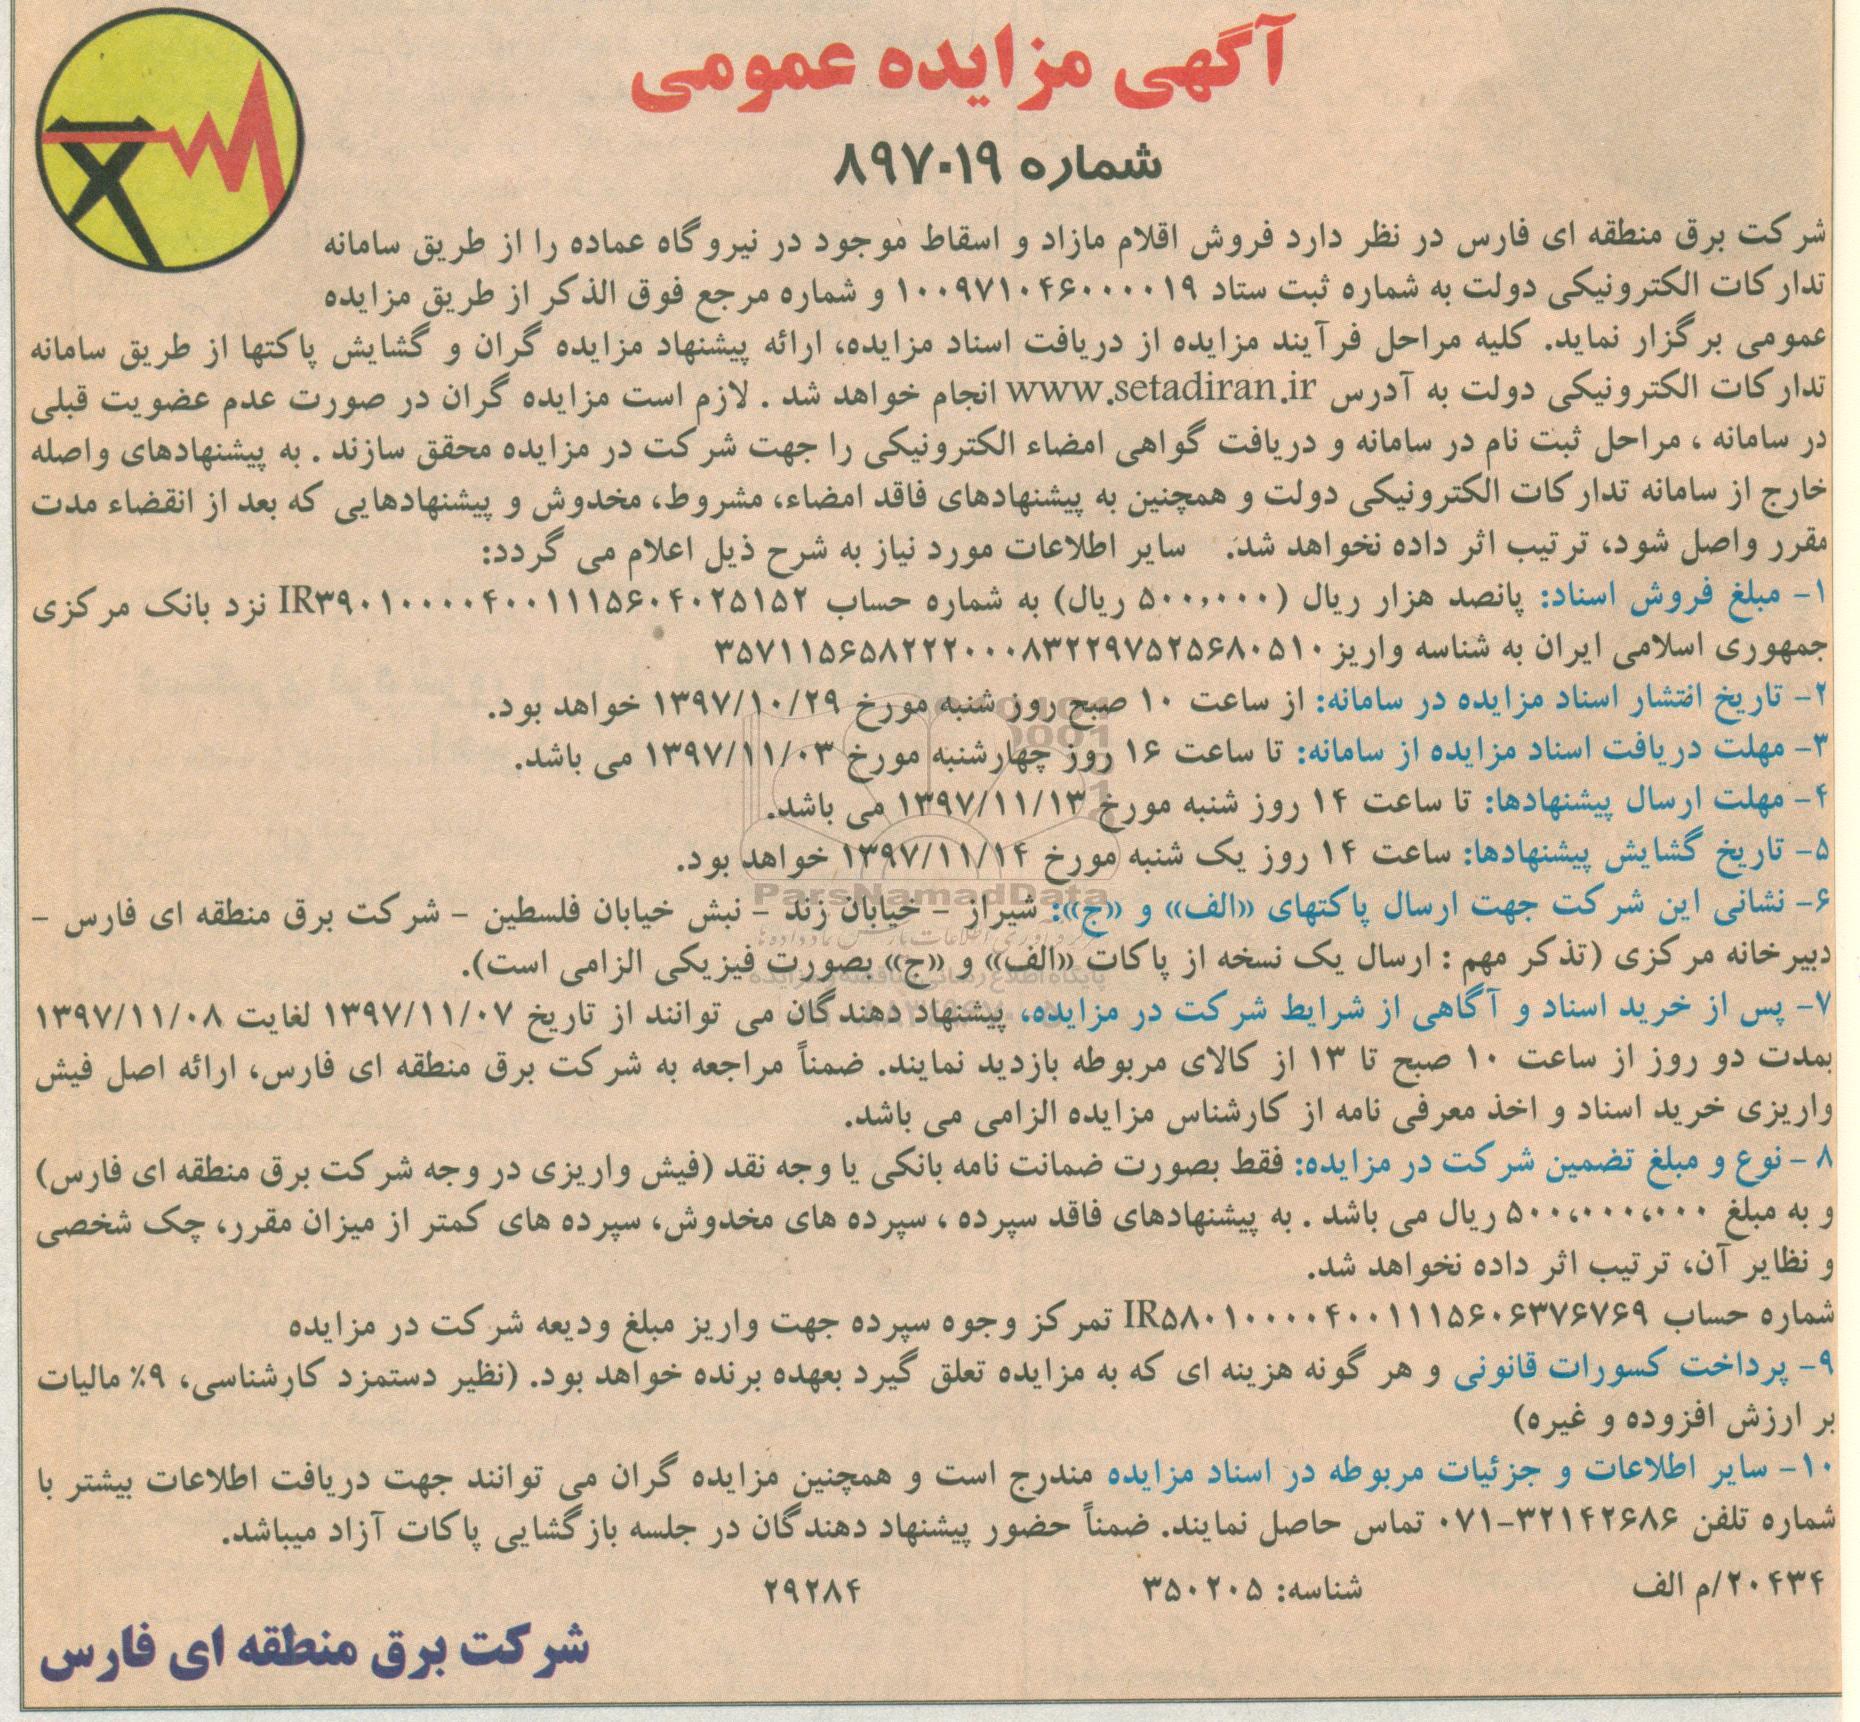 آگهی مزایده عمومی
شماره ۸۹۷۰۱۹
شرکت برق منطقه ای فارس در نظر دارد فروش اقلام مازاد و اسقاط موجود در نیروگاه عماده را از طریق سامانه
تدارکات الکترونیکی دولت به شماره ثبت ستاد ۱۰۰۹۷۱۰۴۶۰۰۰۰۱۹ و شماره مرجع فوق الذکر از طریق مزایده
عمومی برگزار نماید. کلیه مراحل فرآیند مزایده از دریافت اسناد مزایده، ارائه پیشنهاد مزایده گران و گشایش پاکتها از طریق سامانه
تدارکات الکترونیکی دولت به آدرس www.setadiran.ir انجام خواهد شد . لازم است مزایده گران در صورت عدم عضویت قبلی
در سامانه ، مراحل ثبت نام در سامانه و دریافت گواهی امضاء الکترونیکی را جهت شرکت در مزایده محقق سازند . به پیشنهادهای واصله
خارج از سامانه تدارکات الکترونیکی دولت و همچنین به پیشنهادهای فاقد امضاء، مشروط، مخدوش و پیشنهادهایی که بعد از انقضاء مدت
مقرر واصل شود، ترتیب اثر داده نخواهد شد. سایر اطلاعات مورد نیاز به شرح ذیل اعلام می گردد:
۱- مبلغ فروش اسناد: پانصد هزار ریال (۵۰۰,۰۰۰ ریال) به شماره حساب IR۳۹۰۱۰۰۰۰۴۰۰۱۱۱۵۶۰۴۰۲۵۱۵۲ نزد بانک مرکزی
جمهوری اسلامی ایران به شناسه واریز ۳۵۷۱۱۵۶۵۸۲۲۲۰۰۰۸۳۲۲۹۷۵۲۵۶۸۰۵۱۰
۲- تاریخ انتشار اسناد مزایده در سامانه: از ساعت ۱۰ صبح روز شنبه مورخ ۱۳۹۷/۱۰/۲۹ خواهد بود.
۳- مهلت دریافت اسناد مزایده از سامانه: تا ساعت ۱۶ روز چهارشنبه مورخ ۱۳۹۷/۱۱/۰۳ می باشد.
۴- مهلت ارسال پیشنهادها: تا ساعت ۱۴ روز شنبه مورخ ۱۳۹۷/۱۱/۱۳ می باشد.
۵- تاریخ گشایش پیشنهادها: ساعت ۱۴ روز یک شنبه مورخ ۱۳۹۷/۱۱/۱۴ خواهد بود.
ParsNamadData
۶- نشانی این شرکت جهت ارسال پاکتهای «الف» و «ج»: شیراز - خیابان زند - نبش خیابان فلسطین - شرکت برق منطقه ای فارس -
دبیرخانه مرکزی (تذکر مهم : ارسال یک نسخه از پاکات «الف» و «ج» بصورت فیزیکی الزامی است).
۷- پس از خرید اسناد و آگاهی از شرایط شرکت در مزایده، پیشنهاد دهندگان می توانند از تاریخ ۱۳۹۷/۱۱/۰۷ لغایت ۱۳۹۷/۱۱/۰۸
بمدت دو روز از ساعت ۱۰ صبح تا ۱۳ از کالای مربوطه بازدید نمایند. ضمناً مراجعه به شرکت برق منطقه ای فارس، ارائه اصل فیش
واریزی خرید اسناد و اخذ معرفی نامه از کارشناس مزایده الزامی می باشد.
۸ - نوع و مبلغ تضمین شرکت در مزایده: فقط بصورت ضمانت نامه بانکی یا وجه نقد (فیش واریزی در وجه شرکت برق منطقه ای فارس)
و به مبلغ ۵۰۰،۰۰۰،۰۰۰ ریال می باشد . به پیشنهادهای فاقد سپرده ، سپرده های مخدوش، سپرده های کمتر از میزان مقرر، چک شخصی
و نظایر آن، ترتیب اثر داده نخواهد شد.
شماره حساب IR۵۸۰۱۰۰۰۰۴۰۰۱۱۱۵۶۰۶۳۷۶۷۶۹ تمرکز وجوه سپرده جهت واریز مبلغ ودیعه شرکت در مزایده
۹- پرداخت کسورات قانونی و هر گونه هزینه ای که به مزایده تعلق گیرد بعهده برنده خواهد بود. (نظیر دستمزد کارشناسی، ۹٪ مالیات
بر ارزش افزوده و غیره)
۱۰- سایر اطلاعات و جزئیات مربوطه در اسناد مزایده مندرج است و همچنین مزایده گران می توانند جهت دریافت اطلاعات بیشتر با
شماره تلفن ۳۲۱۴۲۶۸۶-۰۷۱ تماس حاصل نمایند. ضمناً حضور پیشنهاد دهندگان در جلسه بازگشایی پاکات آزاد میباشد.
۲۰۴۳۴/م الف شناسه: ۳۵۰۲۰۵ ۲۹۲۸۴
شرکت برق منطقه ای فارس